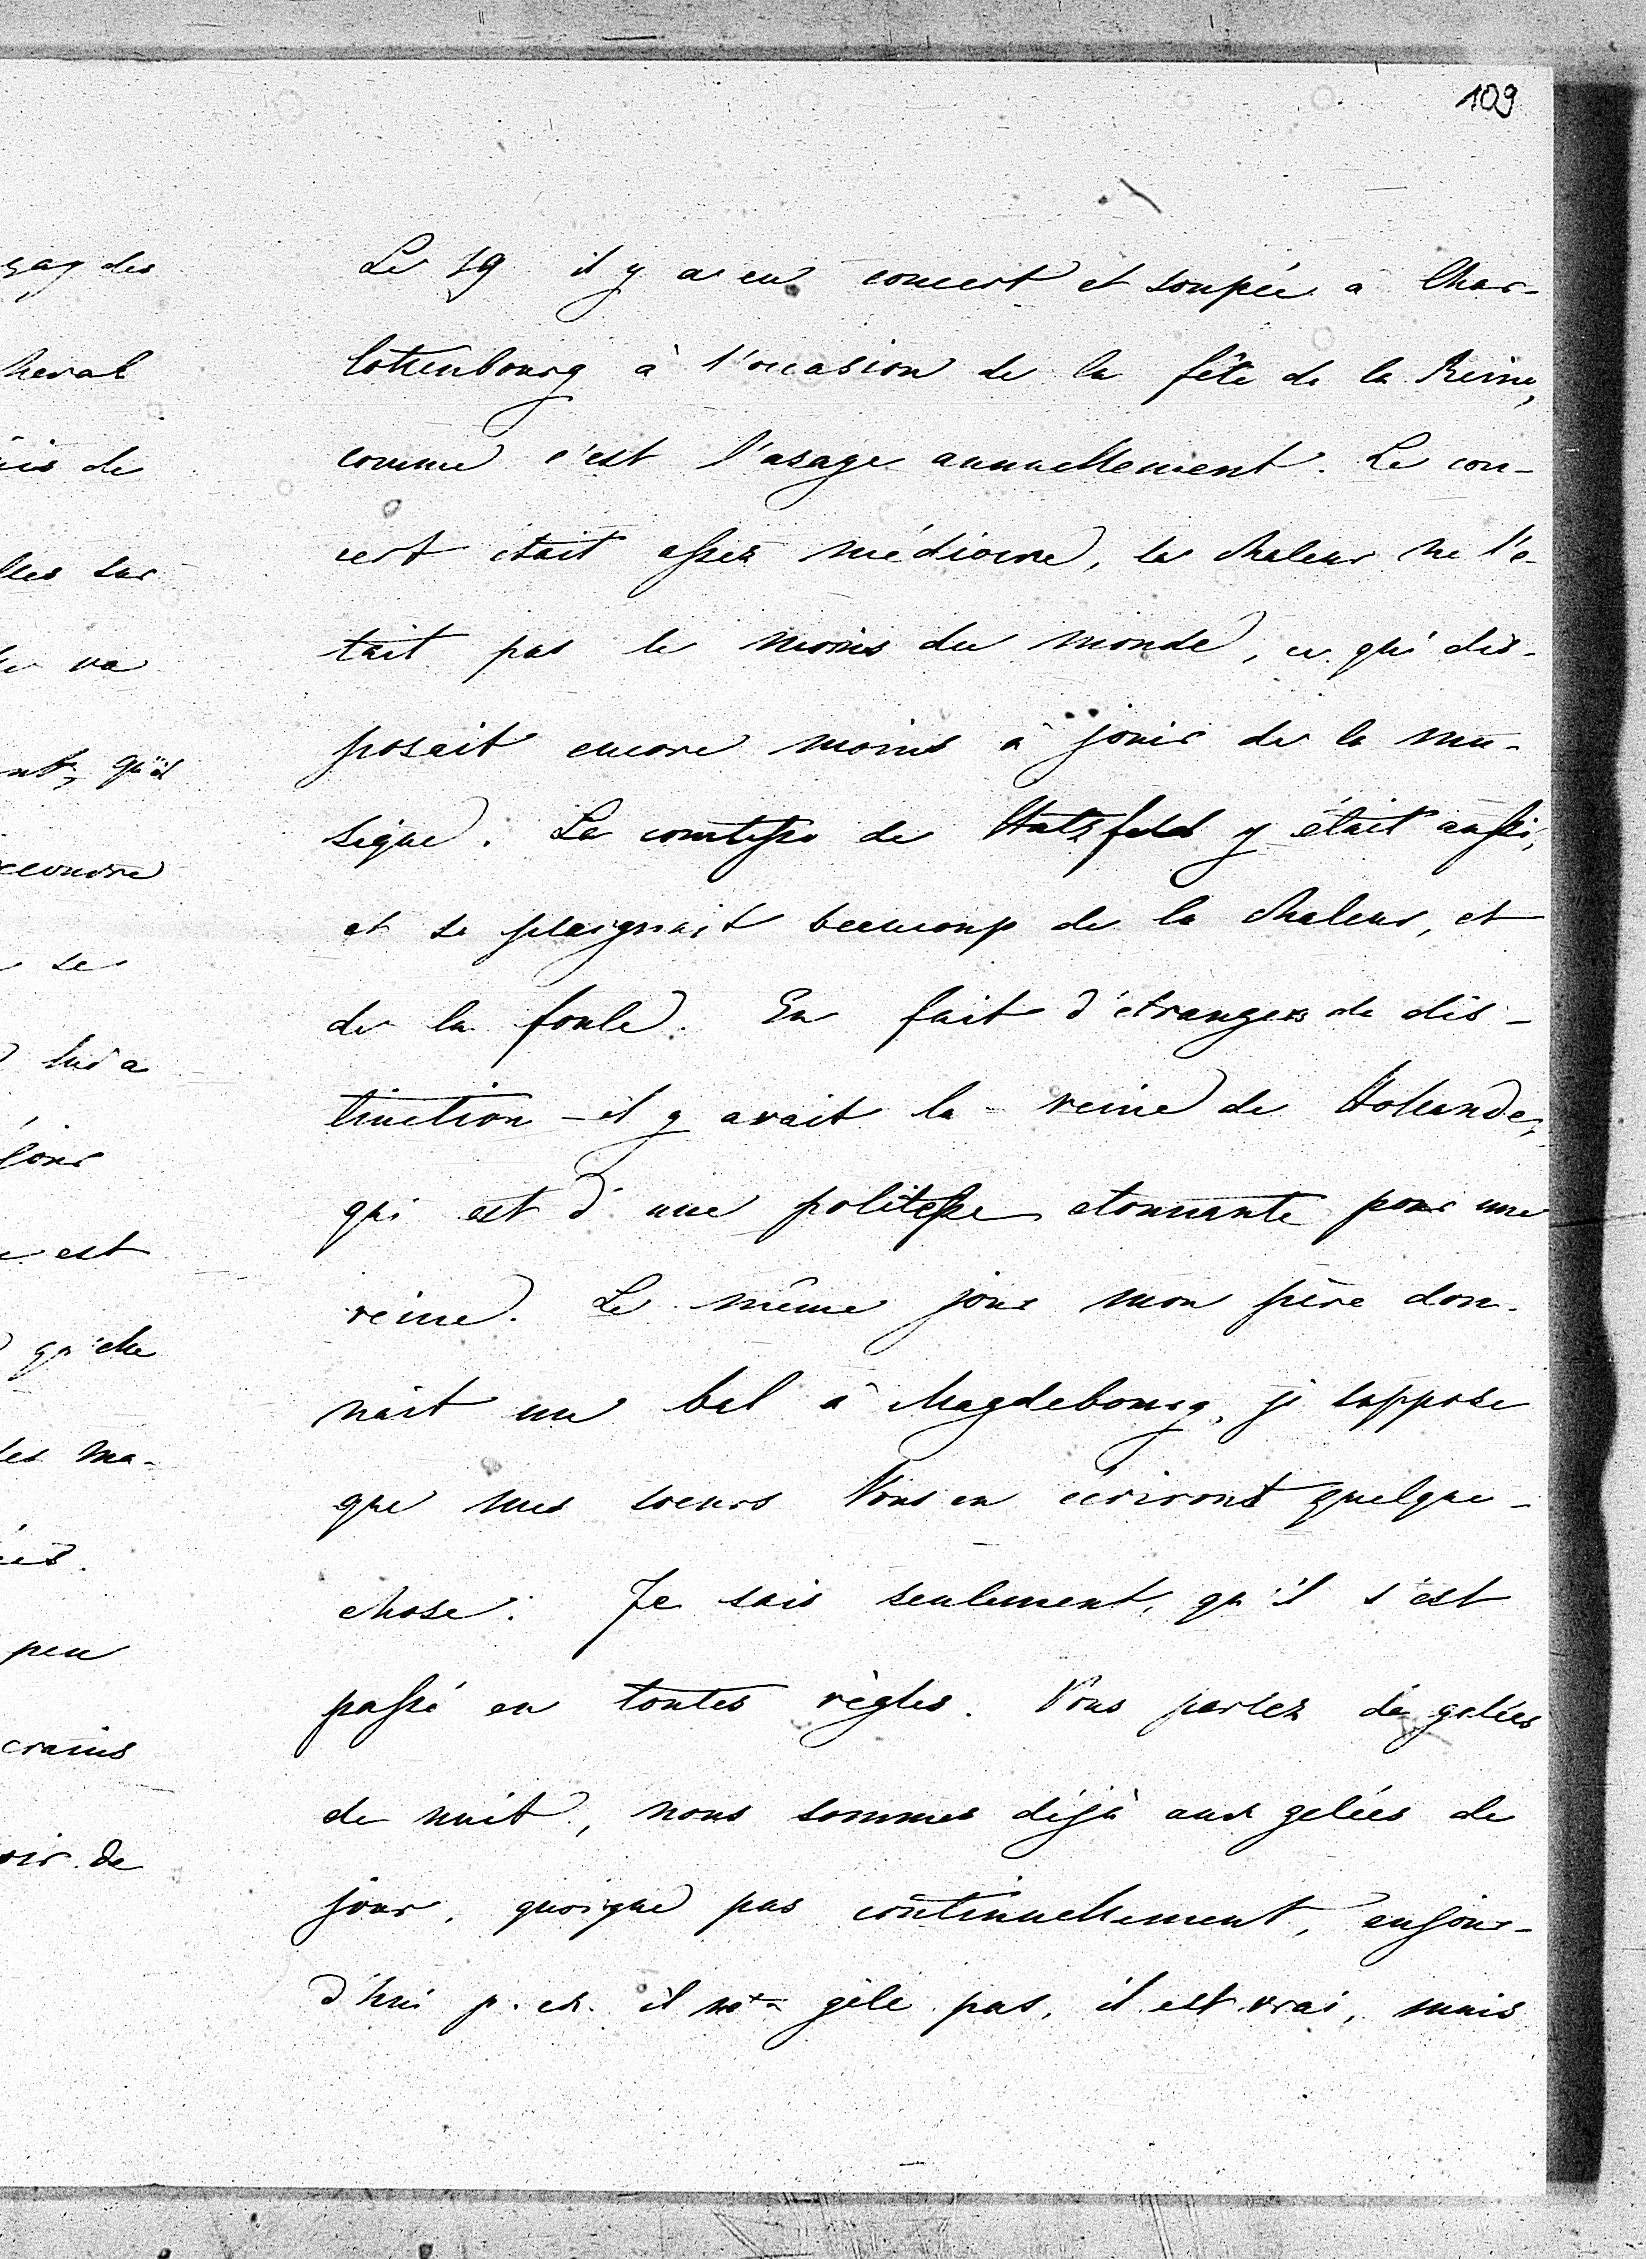 109
Le 19 il y a eu concert et soupée à Char-
lottenbourg à l'occasion de la fête de la Reine,
comme c'est l'usage annuellement. Le con-
cert était assez médiocre, la chaleur ne l'é-
tait pas le moins du monde, ce qui dis-
posait encore moins à jouir de la mu-
sique. La comtesse de Hatzfeld y était aussi,
et se plaignait beaucoup de la chaleur, et
de la foule. En fait d'étrangers de dis-
tinction - il y avait la reine de Hollande,
qui est d'une politesse etonnante pour une
reine. Le même jour mon père don-
nait un bal à Magdebourg, je suppose
que mes soeurs Vous en écriront quelque-
chose. Je sais seulement, qu'il s'est
passé en toutes règles. Vous parlez de gelées
de nuit, nous sommes déjà aux gelées de
jour, quoique pas continuellement, aujour-
d'hui p. ex. il ne gèle pas, il est vrai, mais
des
cheval
de
sur
va
qu'il
se
est
qu'elle
ma-
peu
crains
de